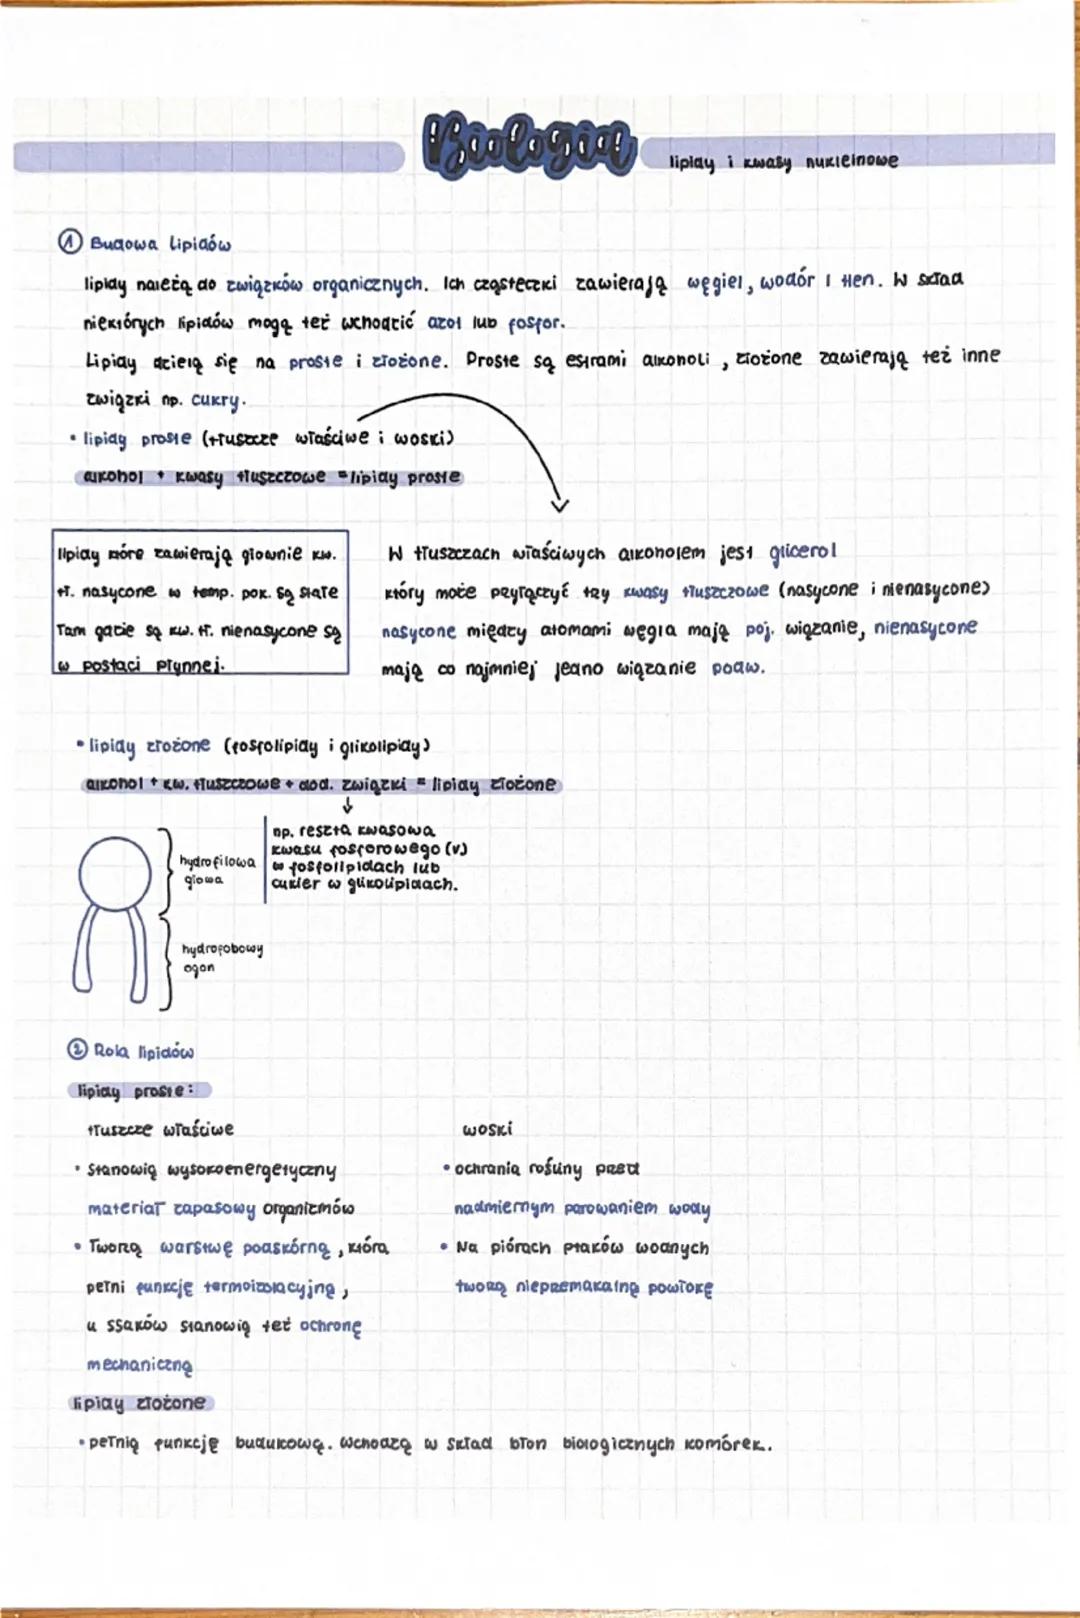 Biologia
lipidy i kwasy nukleinowe
① Budowa lipidów
lipidy należą do związków organicznych. Ich cząsteczki zawierają węgiel, wodór i tlen. W skład
niektórych lipidów mogą też wchodzić azot lub fosfor.
Lipidy dzielą się na proste i złożone. Proste są estrami alkoholi, złożone zawierają też inne
związki np. cukry.
• lipidy proste (tłuszcze właściwe i woski)
alkohol + kwasy tłuszczowe = lipidy proste
lipidy które zawierają głownie kw.
tł. nasycone w temp. pok. są stałe
Tam gdzie są kw. tł. nienasycone są
w postaci płynnej.
W tłuszczach właściwych alkoholem jest glicerol
który może przyłączyć trzy kwasy tłuszczowe (nasycone i nienasycone)
nasycone między atomami węgla mają poj. wiązanie, nienasycone
mają co najmniej jedno wiązanie podw.
• lipidy złożone (fosfolipidy i glikolipidy)
alkohol + kw. tłuszczowe + dod. związki = lipidy złożone
np. reszta kwasowa
kwasu fosforowego (v)
w fosfolipidach lub
cukier w glikolipidach.
hydrofilowa
głowa
hydrofobowy
ogon
② Rola lipidów
lipidy proste:
tłuszcze właściwe
• Stanowią wysokoenergetyczny
materiał zapasowy organizmów
• Tworzą warstwę podskórną, która
pełni funkcję termoizolacyjną,
u ssaków stanowią też ochronę
mechaniczną
woski
• ochranią rośliny przed
nadmiernym parowaniem wody
• Na piórach ptaków wodnych
tworzą nieprzemakalną powłokę
lipidy złożone
• pełnią funkcję budulkową. Wchodzą w skład błon biologicznych komórek.